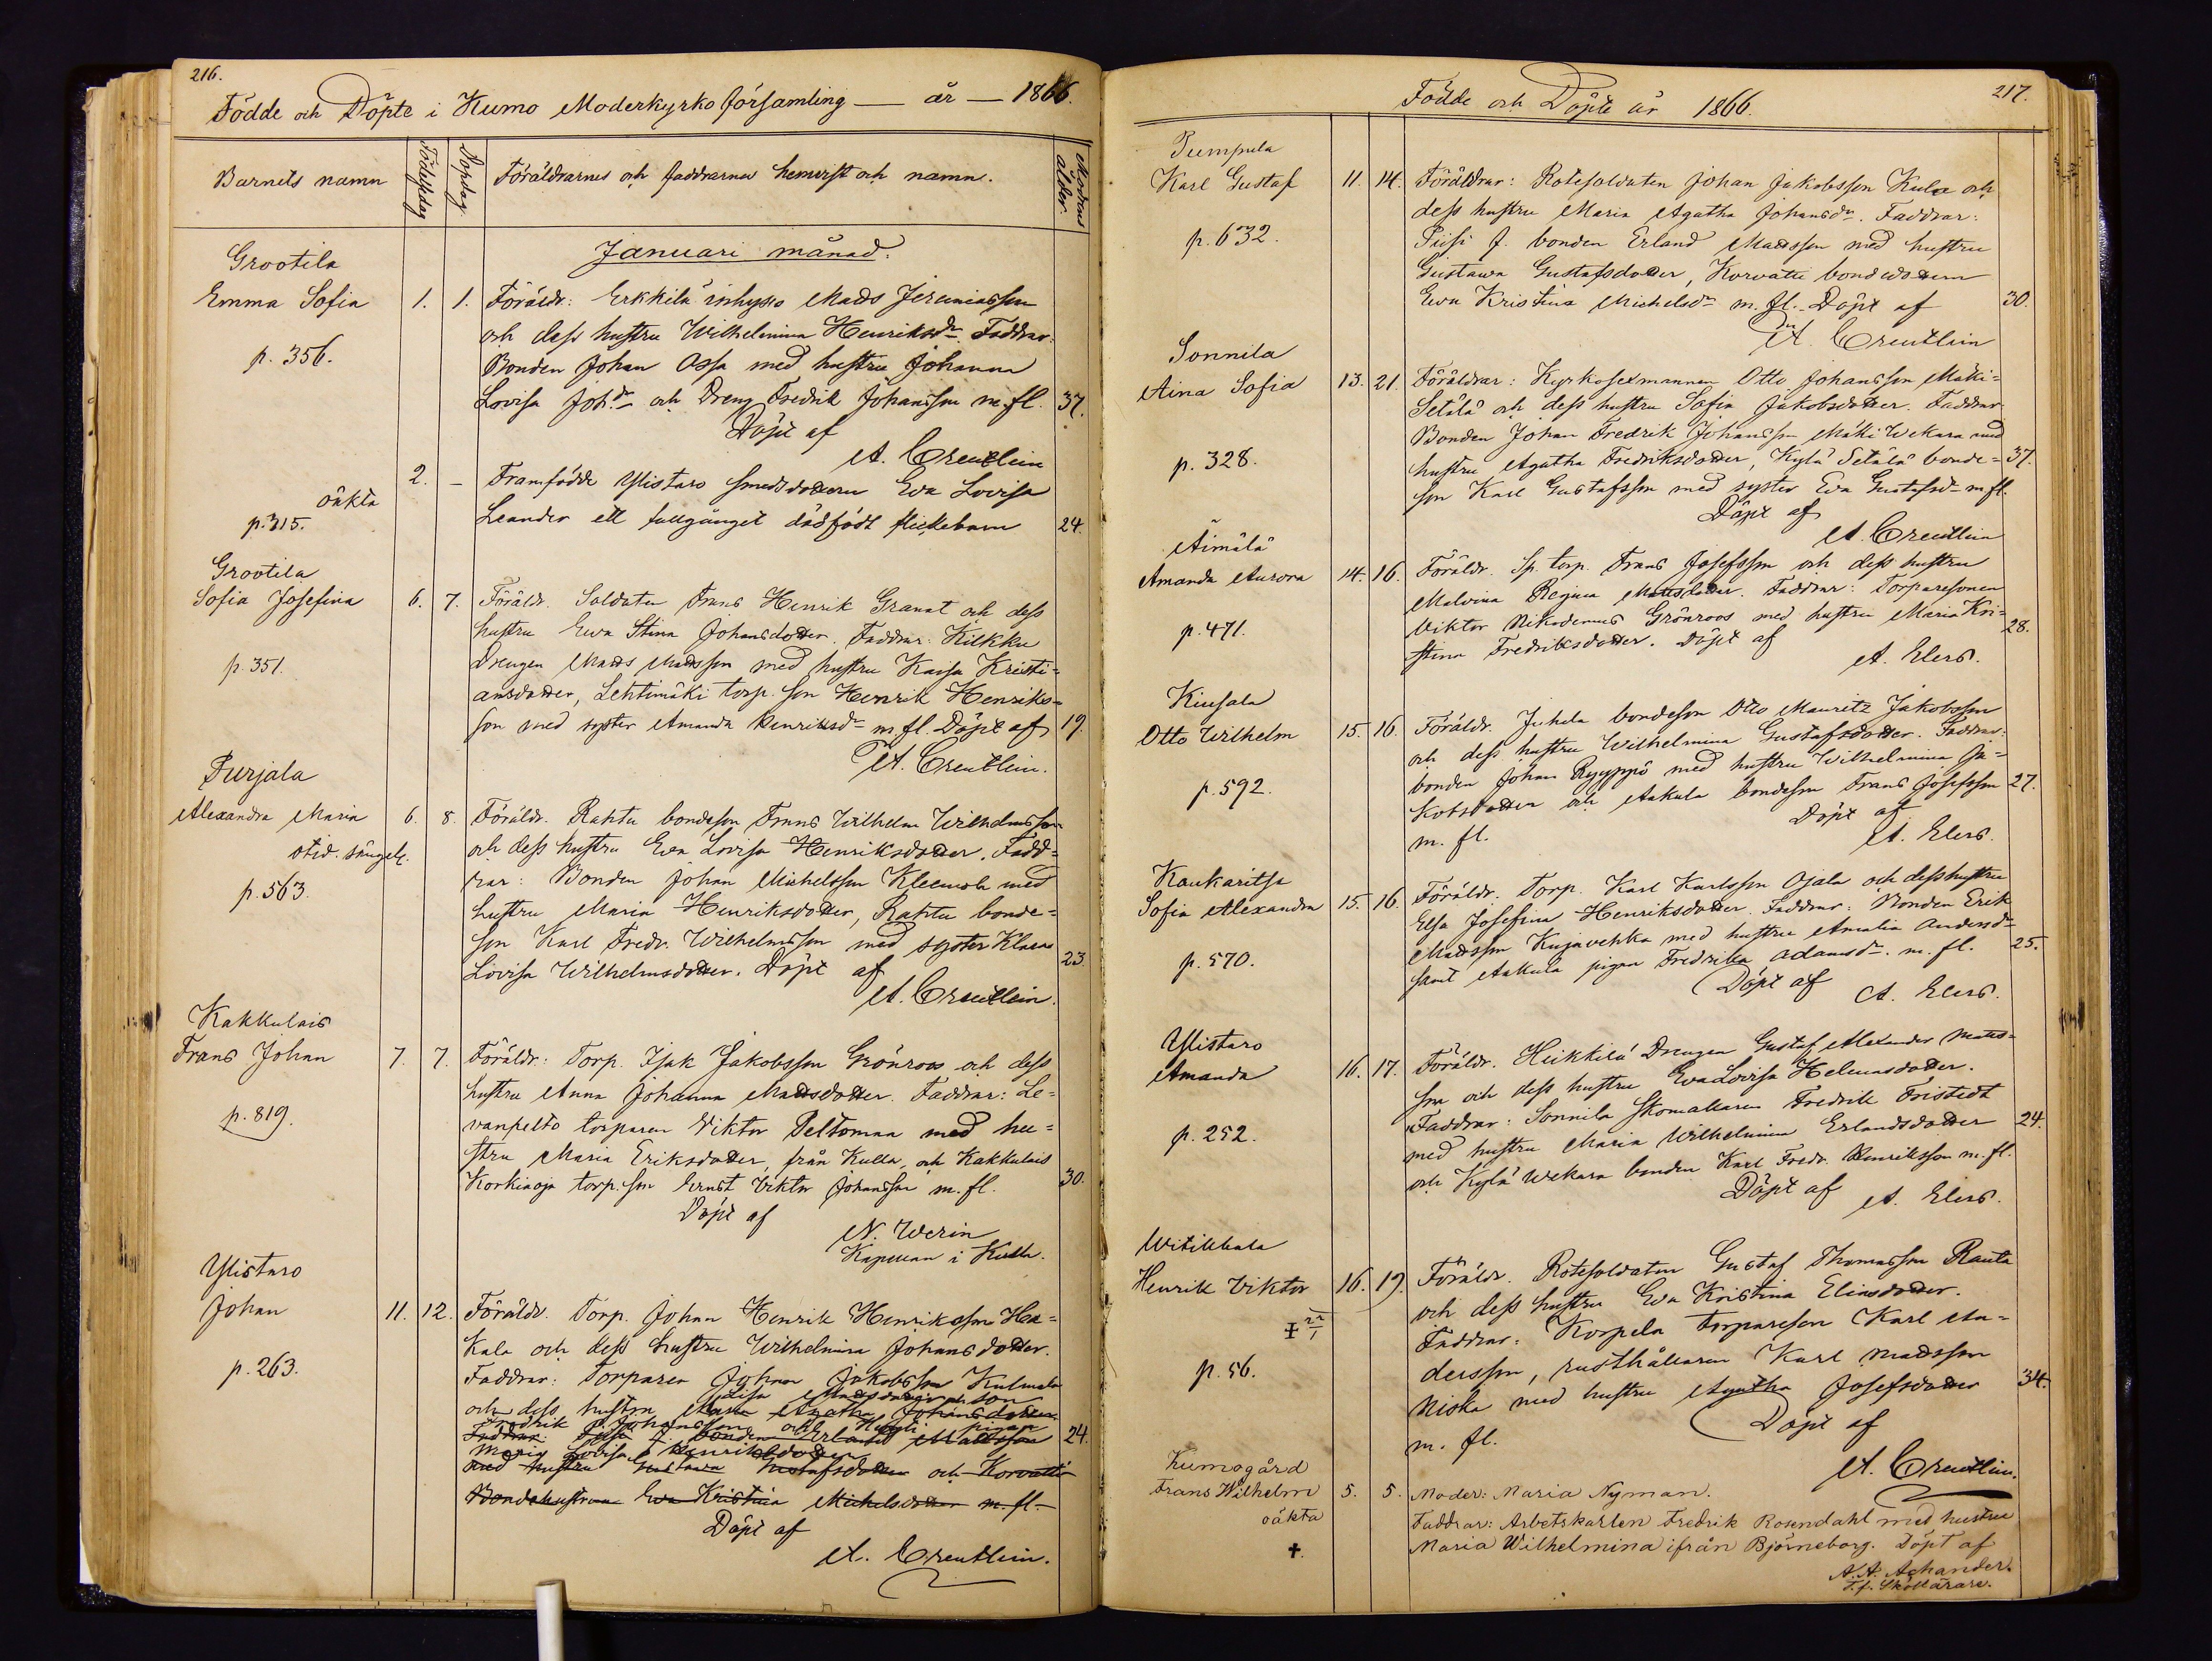 216.
Födde och Döpte i Kumo Moderkyrko församling — år — 1866.
Barnets namn
Födelsedag
Dopdag
Föräldrarnes och faddrarnes hemvist och namn.
Modrens ålder.
Januari månad.
Grootila
Emma Sofia 1. 1. Föräldr: Erkkilä inhyses Mats Jeremiasson
och dess hustru Wilhelmina Henriksdr. Faddrar:
p. 356. Bonden Johan Ossa med hustru Johanna
Lovisa Joh.dr och Dreng Fredrik Johansson m. fl. 37.
Döpt af
A. Creutlein
2. — Framfödde Ylistaro smedsdottern Eva Lovisa
oäkta
p. 315. Leander ett fullgånget dödfödt flickebarn 24.
Grootila
Sofia Josefina 6. 7. Föräldr. Soldaten Frans Henrik Granat och dess
hustru Ewa Stina Johansdotter. Faddrar: Kilkku
p. 351. Drengen Mats Matsson med hustru Kaisa Kristi=
ansdotter, Lehtimäki torp. son Henrik Henriks=
son med syster Amanda Henriksdr m. fl. Döpt af 19.
A. Creutlein.
Purjala
Alexandra Maria 6. 8. Föräldr. Rahtu bondeson Frans Wilhelm Wilhelmsson
och dess hustru Eva Lovisa Henriksdotter. Fadd=
p. 563. rar: Bonden Johan Michelsson Kleemola med
hustru Maria Henriksdotter, Rahtu bonde=
son Karl Fredr. Wilhelmsson med syster Klara
Lovisa Wilhelmsdotter. Döpt af 23.
A. Creutlein.
Kakkulais
Frans Johan 7. 7. Föräldr: Torp. Isak Jakobsson Grönroos och dess
hustru Anna Johanna Matsdotter. Faddrar: Le=
p. 819. vanpelto torparen Viktor Peltomaa med hu=
stru Maria Eriksdotter, från Kulla, och Kakkulais
Korkiaoja torp. son Ernst Viktor Johansson m. fl. 30.
Döpt af
N. Werin
Kapellan i Kulla.
Ylistaro
Johan 11. 12. Föräldr. Torp. Johan Henrik Henriksson Ha=
kala och dess hustru Wilhelmina Johansdotter.
p. 263. Faddrar: Torparen Johan Jakobsson Kulmala
och dess hustru Maria Agatha Johansdotter
Fredrik Johansson och pigan
Faddrar: bonden Erland Matsson 24.
Maria Lovisa Henriksdotter
med hustru Gustava Gustafsdotter och Korvatti
Bondehustrun Eva Kristina Michelsdotter m. fl.
Döpt af
A. Creutlein.
217.
Födde och Döpte år 1866.
Pumpula
Karl Gustaf 11. 14. Föräldrar: Rotesoldaten Johan Jakobsson Kula och
dess hustru Maria Agatha Johansdr. Faddrar:
p. 632. Piisi f. bonden Erland Matsson med hustru
Gustawa Gustafsdotter, Korvatti bondedottern
Ewa Kristina Michelsdr m. fl. Döpt af 30.
A. Creutlein
Sonnila
Aina Sofia 13. 21. Föräldrar: Kyrkosexmannen Otto Johansson Mäki=
Setälä och dess hustru Sofia Jakobsdotter. Faddrar
Bonden Johan Fredrik Johansson Mäki Wekara med
p. 328. hustru Agatha Fredriksdotter, Kylä Setälä bonde= 37.
son Karl Gustafsson med syster Eva Gustafsdr m fl.
Döpt af
A. Creutlein
Äimälä
Amanda Aurora 14. 16. Föräldr. Sp. torp. Frans Josefsson och dess hustru
Malvina Regina Matsdotter. Faddrar: Torparesonen
p. 471. Viktor Nikodemus Grönroos med hustru Maria Kri=
stina Fredriksdotter. Döpt af 28.
A. Elers.
Kiusala
Otto Wilhelm 15. 16. Föräldr. Juhela bondeson Otto Mauritz Jakobsson
och dess hustru Wilhelmina Gustafsdotter. Faddrar:
p. 592. bonden Johan Ryyppö med hustru Wilhelmina Ja=
kobsdotter och Aakula bondeson Frans Josefsson 27.
m. fl. Döpt af
A. Elers.
Kaukaritsa
Sofia Alexandra 15. 16. Föräldr. Torp. Karl Karlsson Ojala och dess hustru
Elsa Josefina Henriksdotter. Faddrar: Bonden Erik
p. 570. Matsson Kujavehka med hustru Amalia Andersdr
samt Aakula pigan Fredrika Adamsdr. m. fl. 25.
Döpt af
A. Elers.
Ylistaro
Amanda 16. 17. Föräldr. Heikkilä Drengen Gustaf Alexander Mats=
son och dess hustru Eva Lovisa Helenasdotter.
Faddrar: Sonnila Skomakaren Fredrik Fristedt
p. 252. med hustru Maria Wilhelmina Erlandsdotter 24.
och Kylä Wekara bonden Karl Fredr. Henriksson m. fl.
Döpt af
A. Elers.
Witikkala
Henrik Viktor 16. 19. Föräldr. Rotesoldaten Gustaf Thomasson Rauta
och dess hustru Eva Kristina Eliasdotter.
Faddrar: Korpela torpareson Karl An=
p. 56. dersson, rusthållaren Karl Matsson
Niska med hustru Agatha Josefsdotter 34.
m. fl. Döpt af
A. Creutlein.
Kumogård
Frans Wilhelm 5. 5. Moder: Maria Nyman.
oäkta Faddrar: Arbetskarlen Fredrik Rosendahl med hustru
Maria Wilhelmina ifrån Björneborg. Döpt af
A. A. Achander.
T. f. Skollärare.